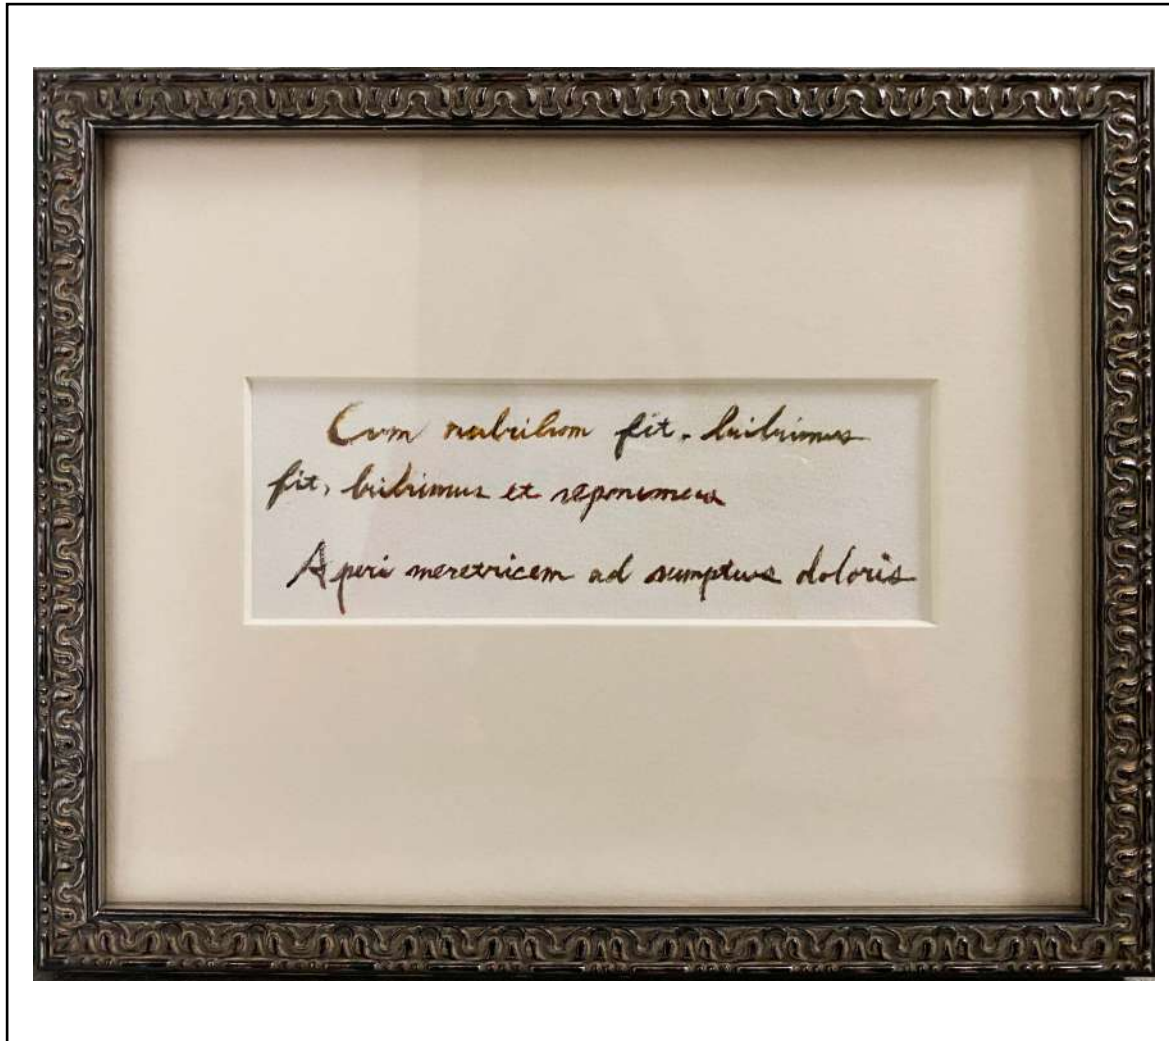 Cum nubilum fit, bibimus
fit, bibimus et reponimus
Aperi meretricem ad sumptus doloris